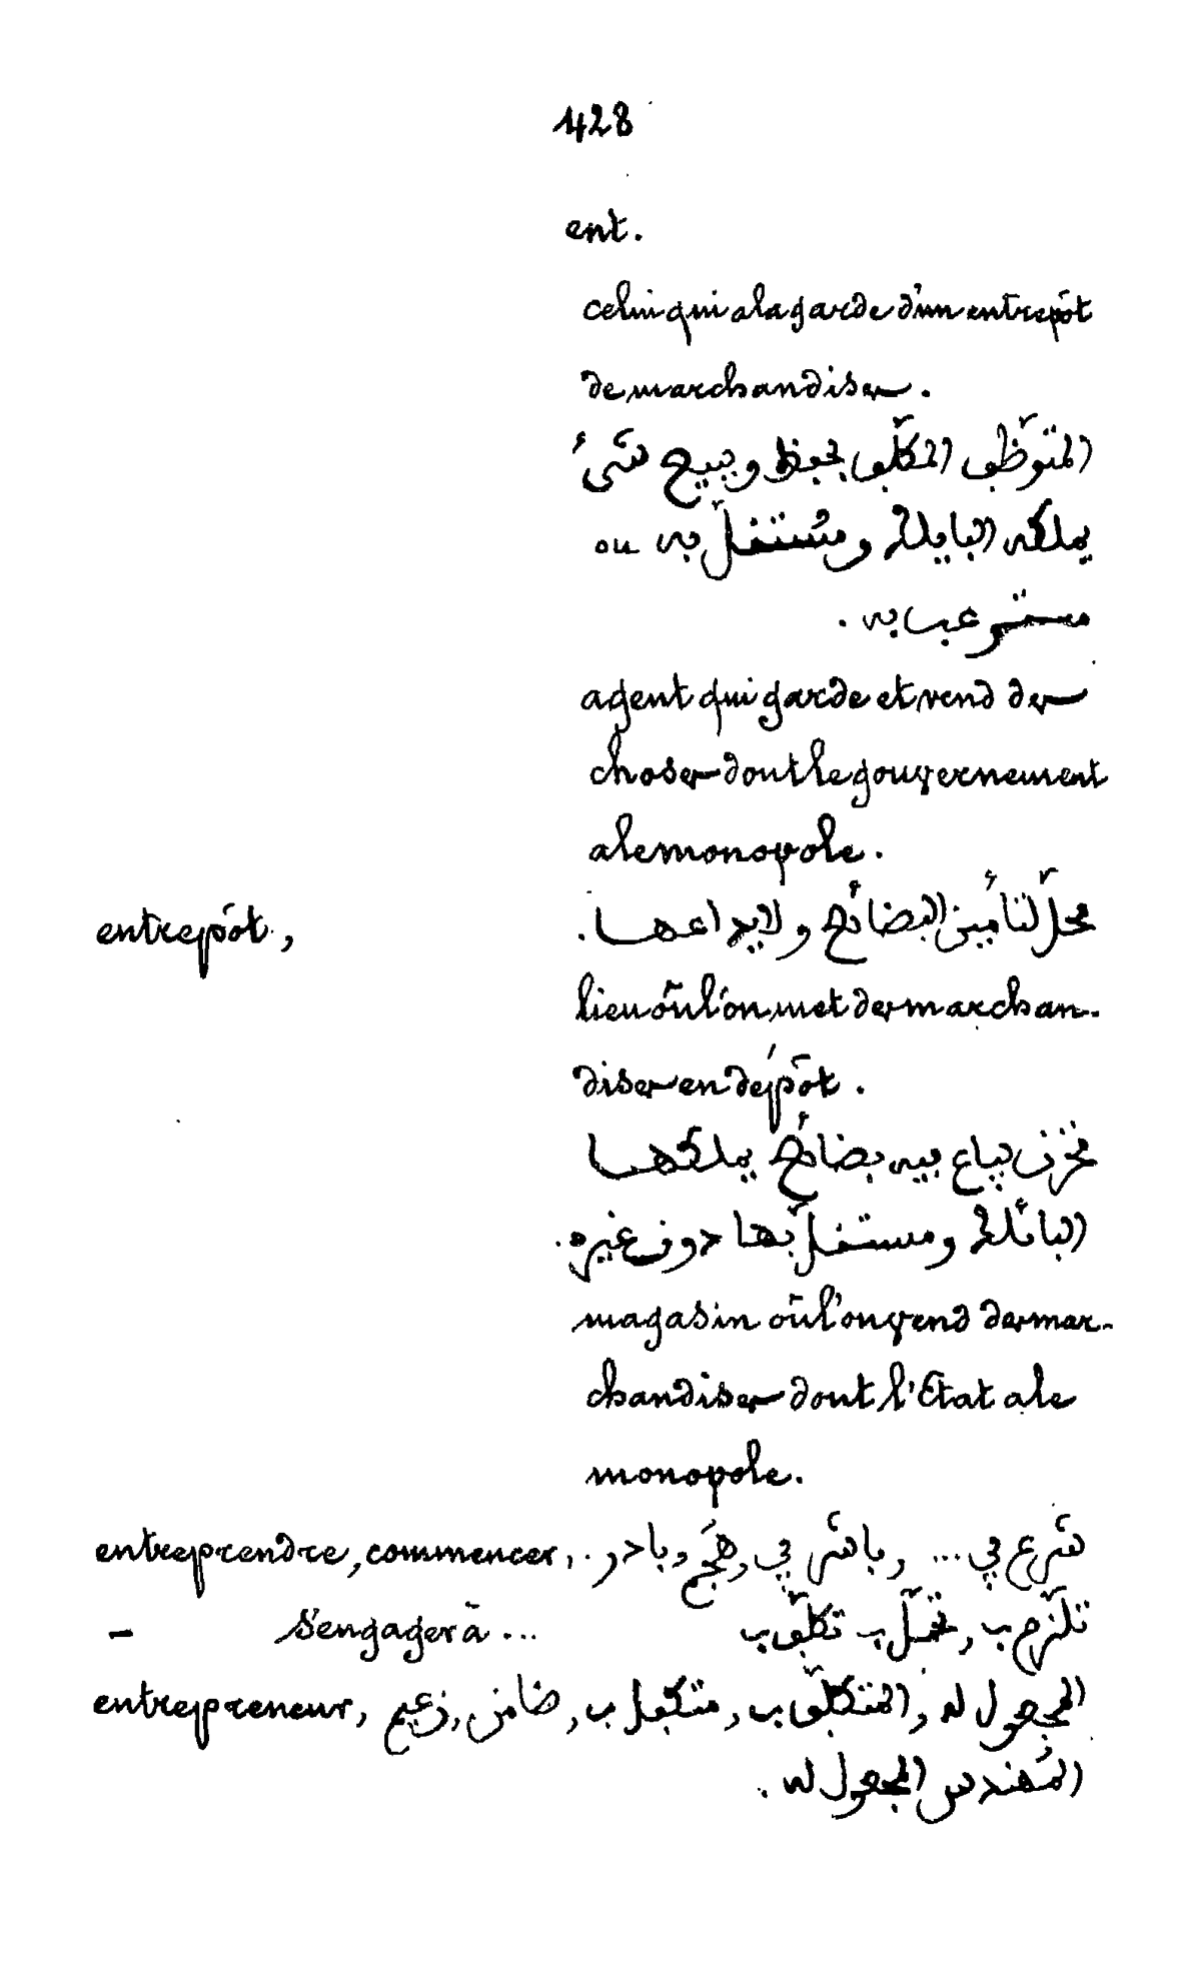 428
ent.
celui qui a la garde d'un entrepôt
de marchandises.
المتوَظّف المكلّف بحفظ وبيع شىء
يملكه البايلك ومُستغلّ به ou
مستوعب به.
agent qui garde et vend des
choses dont le gouvernement
a le monopole.
entrepôt, محلّ لتأمين البضائع ولايداعها.
lieu où l'on met des marchan-
dises en dépôt.
مخزن يباع فيه بضائع يملكها
البائلك ومستغلّ بها دون غيره.
magasin où l'on vend des mar-
chandises dont l'Etat a le
monopole.
entreprendre, commencer, شرع في ... , باشر في, هجَم, بادر..
- s'engager à ... تلتزم ب, تحمّل ب تكلّف ب
entrepreneur, المجعول له, المتكلّف ب, متكفّل ب, ضامن, زعيم
المُهندس المجعول له.